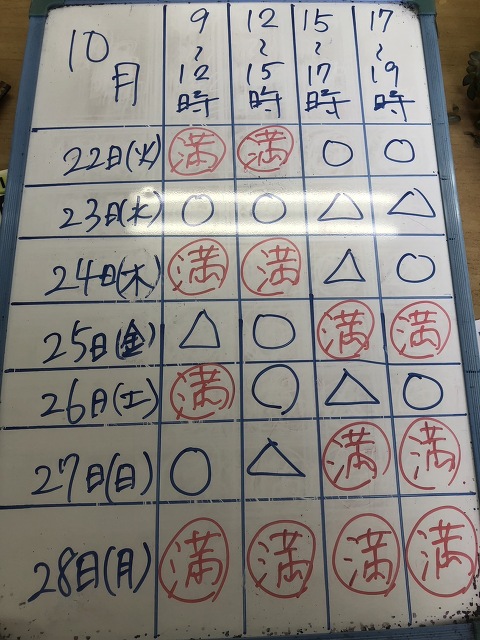 10月 9~12時 12~15時 15~17時 17~19時
22日(火) 満 満 ○ ○
23日(水) ○ ○ △ △
24日(木) 満 満 △ ○
25日(金) △ ○ 満 満
26日(土) 満 ○ △ ○
27日(日) ○ △ 満 満
28日(月) 満 満 満 満